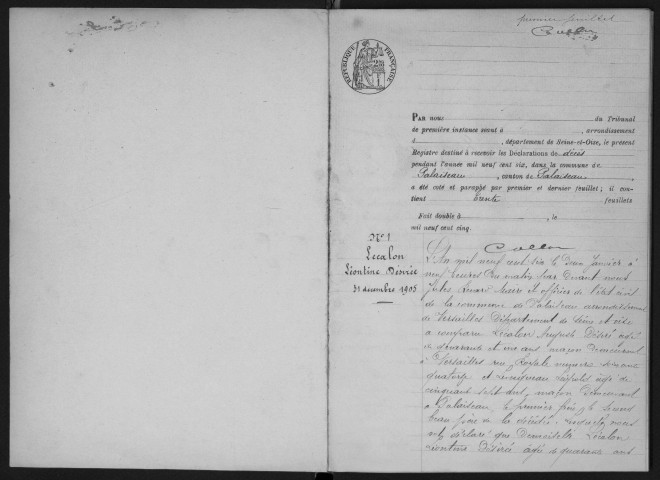 premier feuillet
RÉPUBLIQUE FRANÇAISE
PAR nous du Tribunal
de première instance séant à , arrondissement
d , département de Seine-et-Oise, le présent
Registre destiné à recevoir les Déclarations de décès
pendant l'année mil neuf cent six, dans la commune de
Palaiseau , canton de Palaiseau
a été coté et paraphé par premier et dernier feuillet; il con-
tient trente feuillets
Fait double à , le
mil neuf cent cinq.
N° 1
Lecalon
Léontine Désirée
31 décembre 1905
L'An mil neuf cent six le deux Janvier à
neuf heures du matin par devant nous
Jules Maire et officier de l'état civil
de la commune de Palaiseau arrondissement
de Versailles Département de Seine et Oise
a comparu Lécalon Auguste Désiré âgé
de quarante et un ans maçon demeurant
à Versailles rue Royale numéro soixante
quatorze et Léopold âgé de
cinquante sept ans, maçon Demeurant
à Palaiseau, le premier frère, le second
beau frère de la décédée. Lesquels nous
ont déclaré que Demoiselle Lécalon
Léontine Désirée âgée de quarante ans